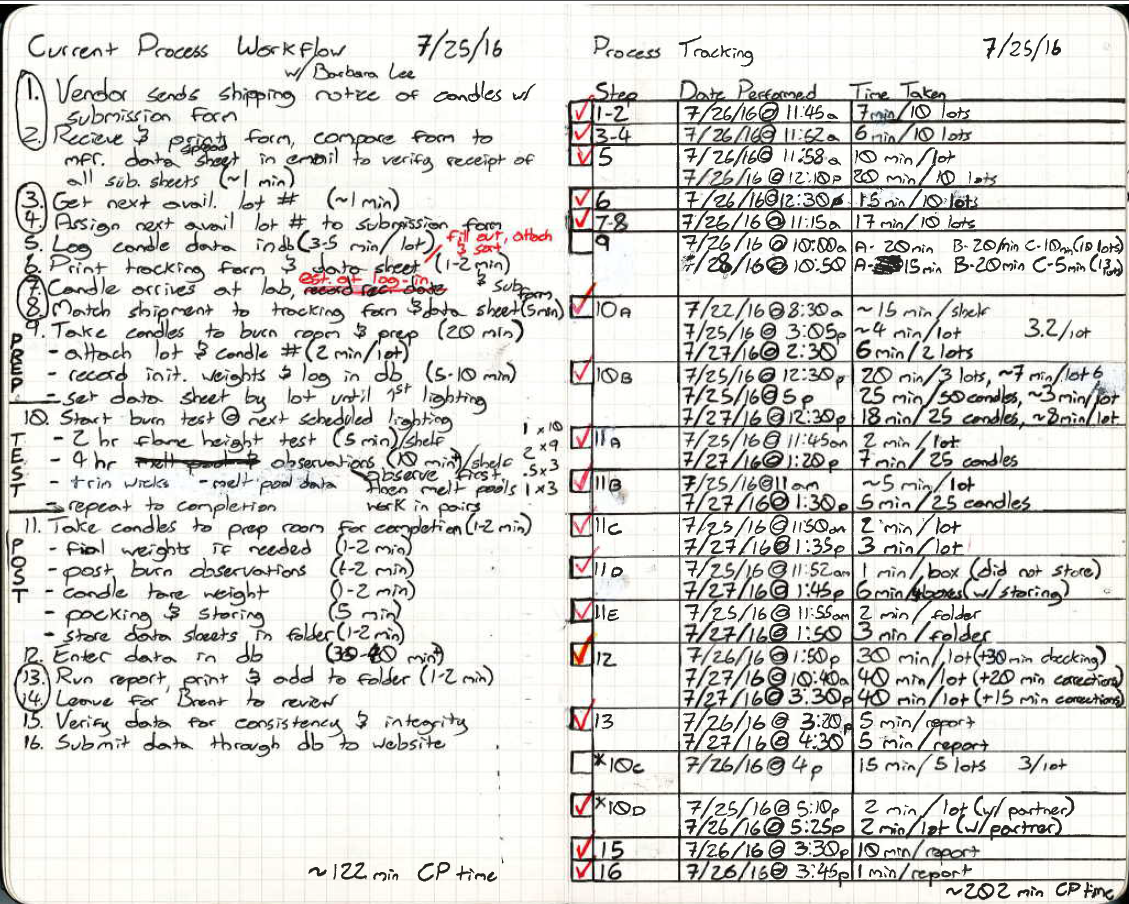 Current Process Workflow 7/25/16
w/ Barbara Lee
1. Vendor sends shipping notice of candles w/
submission form
2. Recieve & print form, compare form to
spread
mfr. data sheet in email to verify receipt of
all sub. sheets (~1 min)
3. Get next avail. lot # (~1 min)
4. Assign next avail lot # to submission form
5. Log candle data in db (3-5 min/lot) fill out, attach
& sort
6. Print tracking form & data sheet (1-2 min)
est. at log-in
7. Candle arrives at lab, record rec. date & sub form
8. Match shipment to tracking form & data sheet (5 min)
9. Take candles to burn room & prep (20 min)
- attach lot & candle # (2 min/lot)
- record init. weights & log in db (5-10 min)
- set data sheet by lot until 1st lighting
PREP
10. Start burn test @ next scheduled lighting
- 2 hr flame height test (5 min)/shelf 1 x 10
2 x 9
- 4 hr melt pool & observations (10 min+)/shelf .5 x 3
- trim wicks - melt pool data observe first, 1 x 3
then melt pools
- repeat to completion work in pairs
TEST
11. Take candles to prep room for completion (1-2 min)
- final weights if needed (1-2 min)
- post burn observations (1-2 min)
- candle tare weight (1-2 min)
- packing & storing (5 min)
- store data sheets in folder (1-2 min)
POST
12. Enter data in db (30-40 min+)
13. Run report, print & add to folder (1-2 min)
14. Leave for Brent to review
15. Verify data for consistency & integrity
16. Submit data through db to website
~122 min CP time
Process Tracking 7/25/16
Step Date Performed Time Taken
1-2 7/26/16 @ 11:45a 7 min/10 lots
3-4 7/26/16 @ 11:52a 6 min/10 lots
5 7/26/16 @ 11:58a 10 min/lot
7/26/16 @ 12:10p 20 min/10 lots
6 7/26/16 @ 12:30p 15 min/10 lots
7-8 7/26/16 @ 11:15a 17 min/10 lots
9 7/26/16 @ 10:00a A- 20min B-20min C-10min (10 lots)
7/28/16 @ 10:50 A- 15min B-20min C-5min (13 lots)
10A 7/22/16 @ 8:30a ~15 min/shelf
7/25/16 @ 3:05p ~4 min/lot 3.2/lot
7/27/16 @ 2:30 6 min/2 lots
10B 7/25/16 @ 12:30p 20 min/3 lots, ~7 min/lot 6
7/25/16 @ 5p 25 min/50 candles, ~3min/lot
7/27/16 @ 12:30p 18 min/25 candles, ~8min/lot
11A 7/25/16 @ 11:45am 2 min/lot
7/27/16 @ 1:20p 7 min/25 candles
11B 7/25/16 @ 11am ~5 min/lot
7/27/16 @ 1:30p 5 min/25 candles
11C 7/25/16 @ 11:50am 2 min/lot
7/27/16 @ 1:35p 3 min/lot
11D 7/25/16 @ 11:52am 1 min/box (did not store)
7/27/16 @ 1:45p 6 min/4boxes (w/ storing)
11E 7/25/16 @ 11:55am 2 min/folder
7/27/16 @ 1:50 3 min/folder
12 7/26/16 @ 1:50p 30 min/lot (+30min checking)
7/27/16 @ 10:40a 40 min/lot (+20 min corections)
7/27/16 @ 3:30p 40 min/lot (+15 min corections)
13 7/26/16 @ 3:20p 5 min/report
7/27/16 @ 4:30 5 min/report
*10C 7/26/16 @ 4p 15 min/5 lots 3/lot
*10D 7/25/16 @ 5:10p 2 min/lot (w/ partner)
7/26/16 @ 5:25p 2 min/lot (w/ partner)
15 7/26/16 @ 3:30p 10 min/report
16 7/26/16 @ 3:45p 1 min/report
~202 min CP time